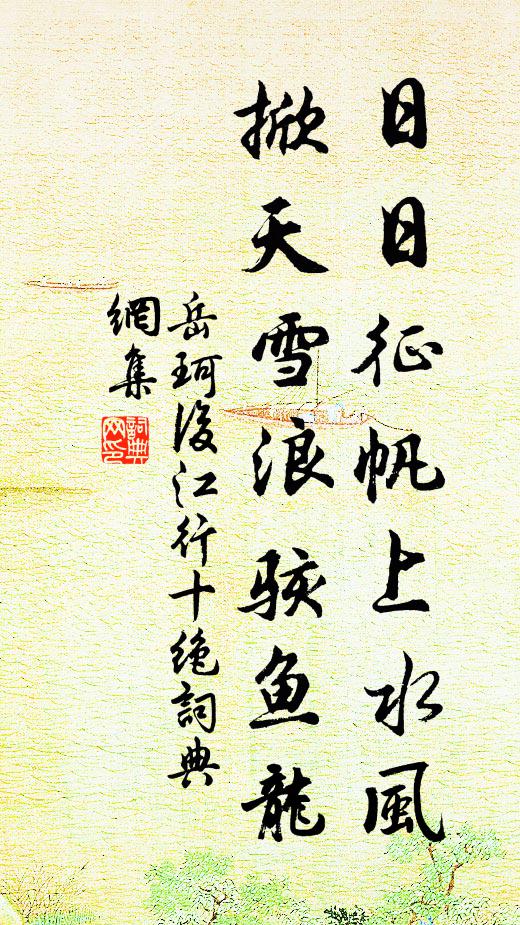 日日征帆上水風
掀天雪浪駭魚龍
岳珂後江行十绝詞典
網集
詞典网印